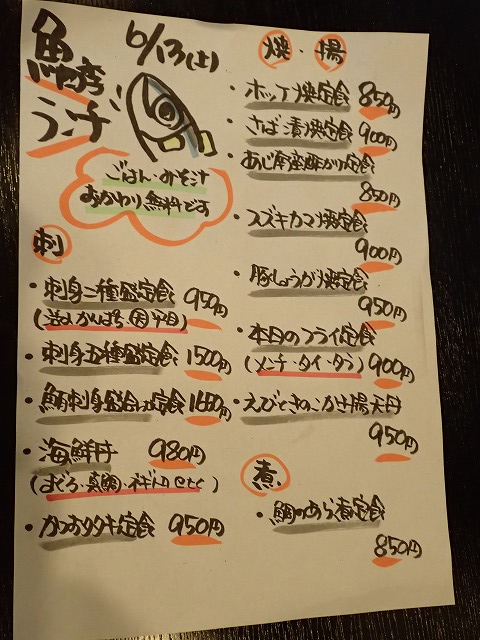 魚秀
ランチ
6/13(土)
ごはん・みそ汁
おかわり無料です
刺
・刺身二種盛定食 950円
・刺身五種盛定食 1500円
・鮪刺身盛合わせ定食 1680円
・海鮮丼 980円
(まぐろ・真鯛・ネギトロetc)
・かつおタタキ定食 950円
焼・揚
・ホッケ焼定食 850円
・さば漬け焼定食 900円
・あじ唐揚 定食
850円
・スズキカマ焼定食
900円
・豚しょうが焼定食
950円
・本日のフライ定食
(メンチ・タイ・タラ) 900円
・えびときのこかき揚天丼
950円
煮
・鯛のあら煮定食
850円